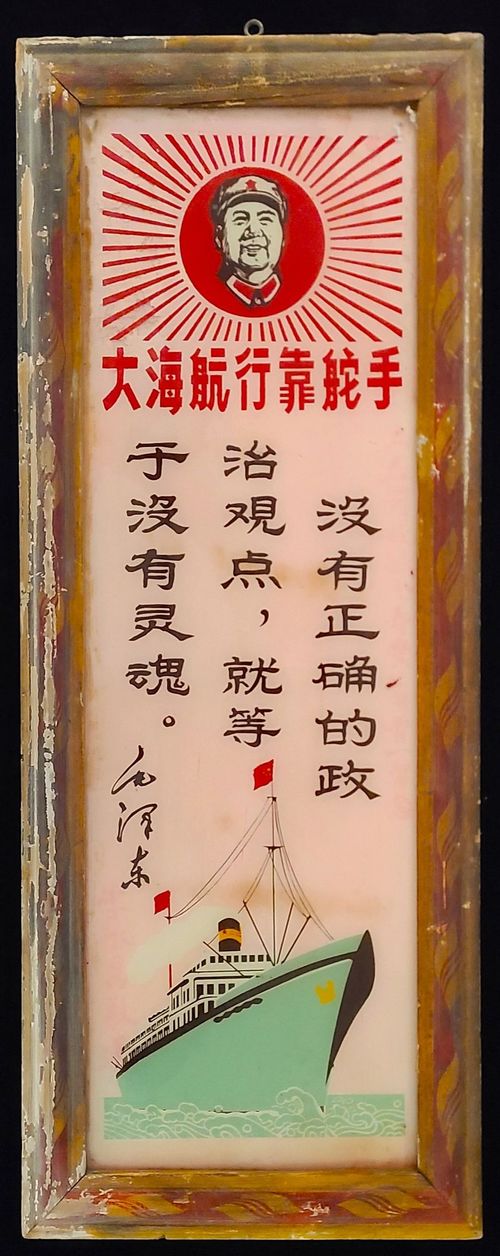 大海航行靠舵手
没有正确的政
治观点，就等
于没有灵魂。
毛泽东